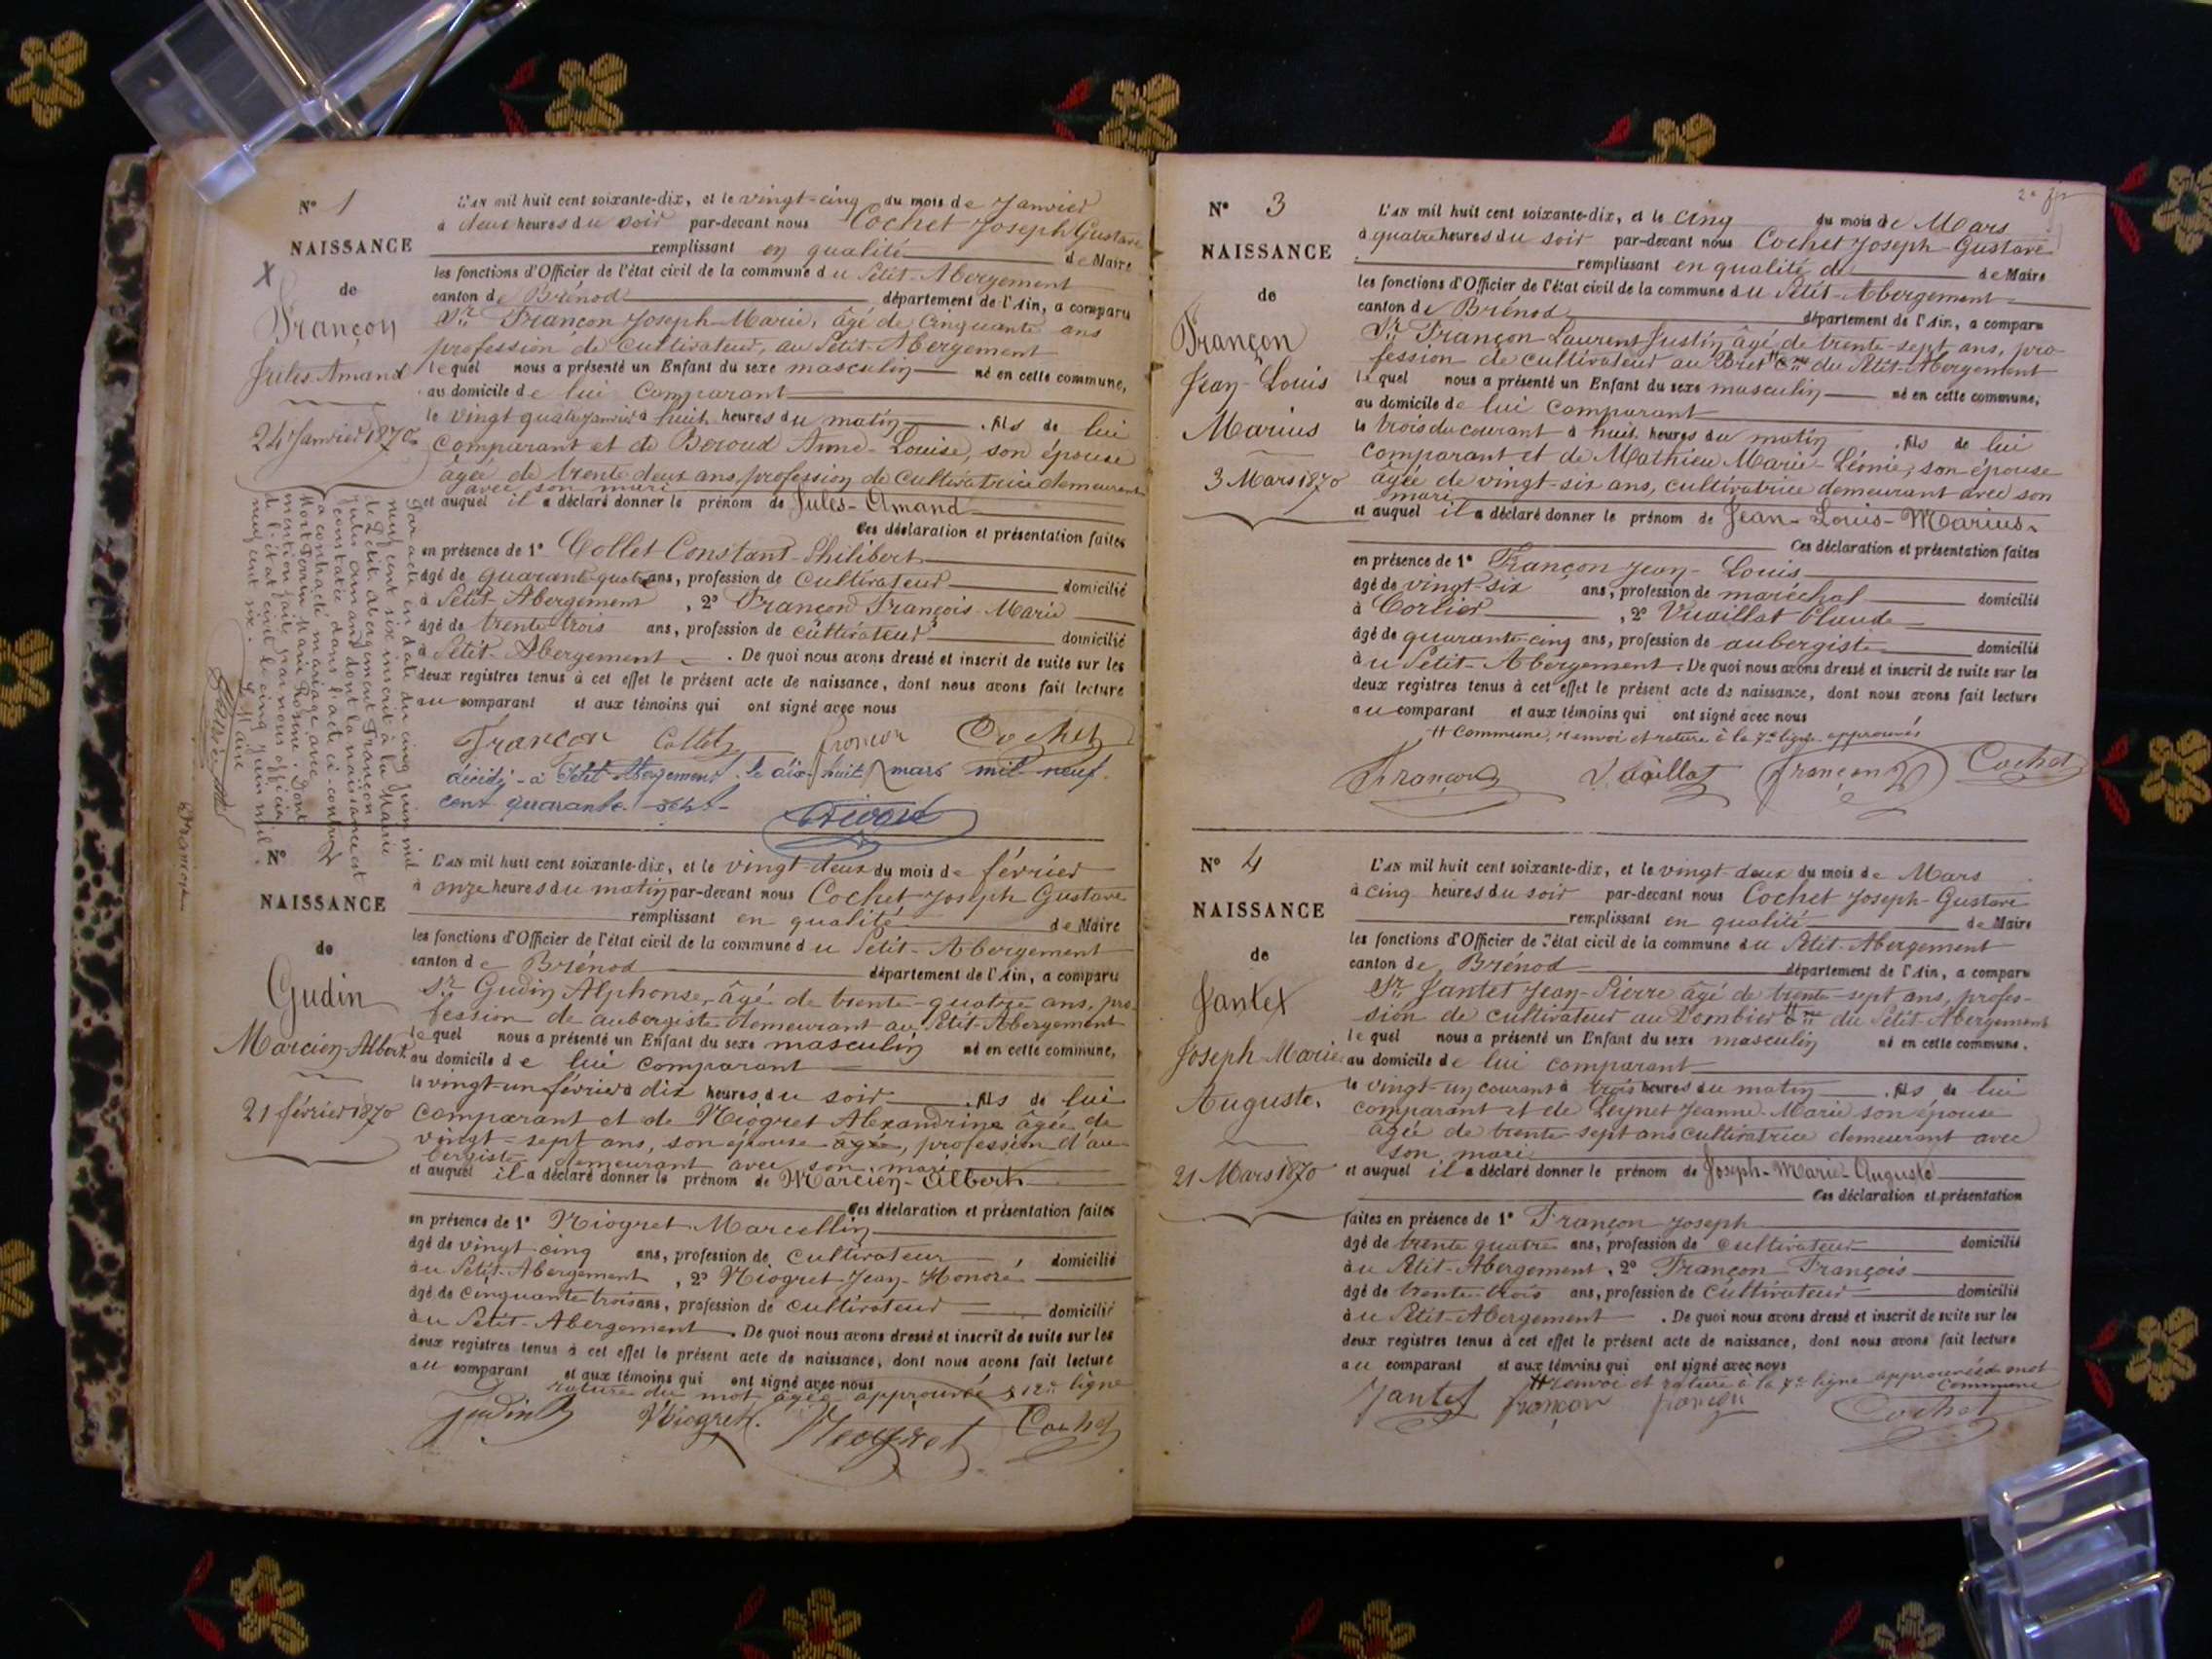 N° 1
NAISSANCE
X
de
Françon
Jules Amand
24 Janvier 1870
L'AN mil huit cent soixante-dix, et le vingt-cinq du mois de Janvier
à deux heures du soir par-devant nous Cochet Joseph Gustave
remplissant en qualité de Maire
les fonctions d'Officier de l'état civil de la commune du Petit-Abergement
canton de Brénod département de l'Ain, a comparu
Sr. Françon Joseph-Marie, âgé de cinquante ans
profession de cultivateur, au Petit-Abergement
lequel nous a présenté un Enfant du sexe masculin né en cette commune,
au domicile de lui comparant
le vingt quatre janvier à huit heures du matin, fils de lui
comparant et de Beroud Anne-Louise, son épouse
âgée de trente-deux ans, profession de cultivatrice demeurant
avec son mari
et auquel il a déclaré donner le prénom de Jules-Amand
Ces déclaration et présentation faites
en présence de 1° Collet Constant-Philibert
âgé de quarante-quatre ans, profession de cultivateur domicilié
à Petit-Abergement, 2° Françon François-Marie
âgé de trente-trois ans, profession de cultivateur domicilié
à Petit-Abergement. De quoi nous avons dressé et inscrit de suite sur les
deux registres tenus à cet effet le présent acte de naissance, dont nous avons fait lecture
au comparant et aux témoins qui ont signé avec nous
Françon Collet françon Cochet
décédé à Petit Abergement le dix-huit mars mil neuf
cent quarante-sept
Par acte en date du cinq juin mil
neuf cent six inscrit à la Mairie
de Petit Abergement Françon
Jules Amand dont la naissance est
constatée dans l'acte ci-contre
a contracté mariage avec
Marie Rosine. Dont
mention faite par nous officier
de l'état civil le cinq juin mil
neuf cent six.
Le Maire
Françon
N° 2
NAISSANCE
de
Gudin
Marcien-Albert
21 février 1870
L'AN mil huit cent soixante-dix, et le vingt-deux du mois de février
à onze heures du matin par-devant nous Cochet Joseph Gustave
remplissant en qualité de Maire
les fonctions d'Officier de l'état civil de la commune du Petit-Abergement
canton de Brénod département de l'Ain, a comparu
Sr. Gudin Alphonse, âgé de trente-quatre ans, pro-
fession de aubergiste demeurant au Petit-Abergement
lequel nous a présenté un Enfant du sexe masculin né en cette commune,
au domicile de lui comparant
le vingt-un février à dix heures du soir, fils de lui
comparant et de Niogret Alexandrine âgée de
vingt-sept ans, son épouse âgée, profession d'au-
bergiste demeurant avec son mari
et auquel il a déclaré donner le prénom de Marcien-Albert
Ces déclaration et présentation faites
en présence de 1° Niogret Marcellin
âgé de vingt-cinq ans, profession de cultivateur, domicilié
au Petit-Abergement, 2° Niogret Jean-Honoré
âgé de cinquante-trois ans, profession de cultivateur domicilié
au Petit-Abergement. De quoi nous avons dressé et inscrit de suite sur les
deux registres tenus à cet effet le présent acte de naissance, dont nous avons fait lecture
au comparant et aux témoins qui ont signé avec nous
rature du mot âgée approuvée 12e ligne
gudin Niogret Niogret Cochet
N° 3
NAISSANCE
de
Françon
Jean-Louis
Marius
3 Mars 1870
L'AN mil huit cent soixante-dix, et le cinq du mois de Mars
à quatre heures du soir par-devant nous Cochet Joseph-Gustave
remplissant en qualité de de Maire
les fonctions d'Officier de l'état civil de la commune du Petit-Abergement
canton de Brénod département de l'Ain, a comparu
Sr. Françon Laurent Justin âgé de trente-sept ans, pro-
fession de cultivateur au du Petit-Abergement
lequel nous a présenté un Enfant du sexe masculin né en cette commune,
au domicile de lui comparant
le trois du courant à huit heures du matin, fils de lui
comparant et de Mathieu Marie-Lémie, son épouse
âgée de vingt-six ans, cultivatrice demeurant avec son
mari
et auquel il a déclaré donner le prénom de Jean-Louis-Marius.
Ces déclaration et présentation faites
en présence de 1° Françon Jean-Louis
âgé de vingt-six ans, profession de maréchal domicilié
à Corlier, 2° Vuaillat Claude
âgé de quarante-cinq ans, profession de aubergiste domicilié
au Petit-Abergement. De quoi nous avons dressé et inscrit de suite sur les
deux registres tenus à cet effet le présent acte de naissance, dont nous avons fait lecture
au comparant et aux témoins qui ont signé avec nous
# commune, renvoi et rature à la 7e ligne approuvés
Françon Vuaillat françon Cochet
N° 4
NAISSANCE
de
Jantet
Joseph-Marie
Auguste.
21 Mars 1870
L'AN mil huit cent soixante-dix, et le vingt-deux du mois de Mars
à cinq heures du soir par-devant nous Cochet Joseph-Gustave
remplissant en qualité de Maire
les fonctions d'Officier de l'état civil de la commune du Petit-Abergement
canton de Brénod département de l'Ain, a comparu
Sr. Jantet Jean-Pierre âgé de trente-sept ans, profes-
sion de cultivateur au Dombier du Petit-Abergement
lequel nous a présenté un Enfant du sexe masculin né en cette commune,
au domicile de lui comparant
le vingt-un courant à trois heures du matin, fils de lui
comparant et de Leynet Jeanne-Marie son épouse
âgée de trente-sept ans cultivatrice demeurant avec
son mari
et auquel il a déclaré donner le prénom de Joseph-Marie-Auguste
Ces déclaration et présentation
faites en présence de 1° Françon Joseph
âgé de trente quatre ans, profession de cultivateur domicilié
au Petit-Abergement, 2° Françon François
âgé de trente-trois ans, profession de cultivateur domicilié
au Petit-Abergement. De quoi nous avons dressé et inscrit de suite sur les
deux registres tenus à cet effet le présent acte de naissance, dont nous avons fait lecture
au comparant et aux témoins qui ont signé avec nous
# renvoi et rature à la 7e ligne approuvés mot
commune
Jantet françon françon Cochet